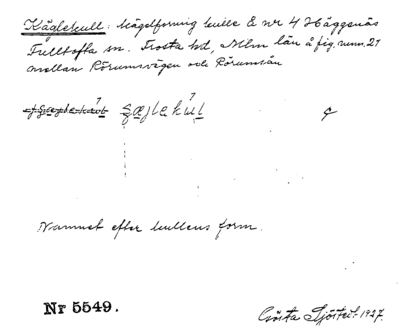 Käglekull: Kägelformig kulle Ö nr 4 Häggenäs
Fulltofta sn. Frosta hd, Mlm län å fig. num. 21
mellan Rörumsvägen och Rörumsån
Namnet efter kullens form.
Nr 5549.
Gösta Sjöstedt 1927.